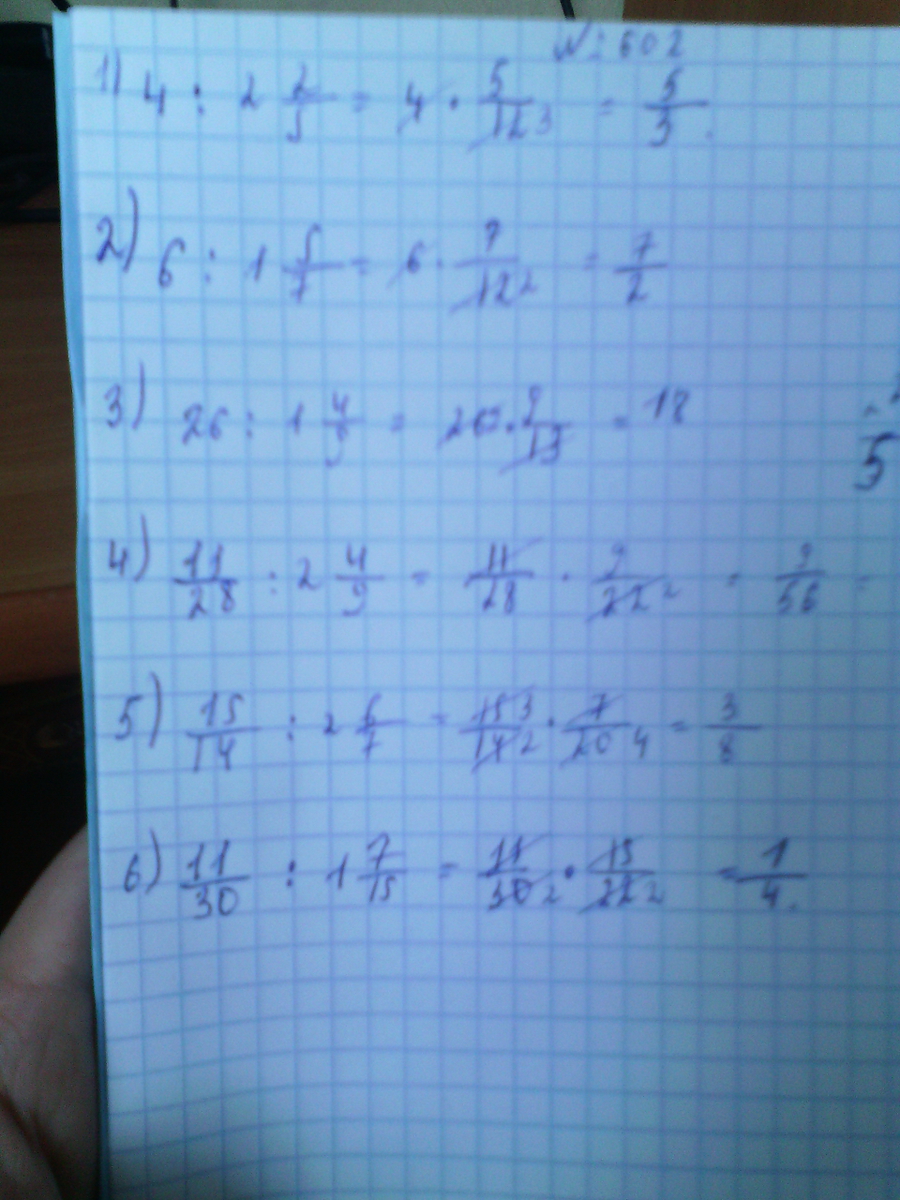 № 602
1) 4 : 2 2/5 = 4 · 5/12 3 = 5/3.
2) 6 : 1 5/7 = 6 · 7/12 2 = 7/2
3) 26 : 1 4/9 = 26 · 9/13 = 18
4) 11/28 : 2 4/9 = 11/28 · 9/22 2 = 9/56 =
5) 15/14 : 2 6/7 = 15 3/14 2 · 7/20 4 = 3/8
6) 11/30 : 1 7/15 = 11/30 2 · 15/22 2 = 1/4.